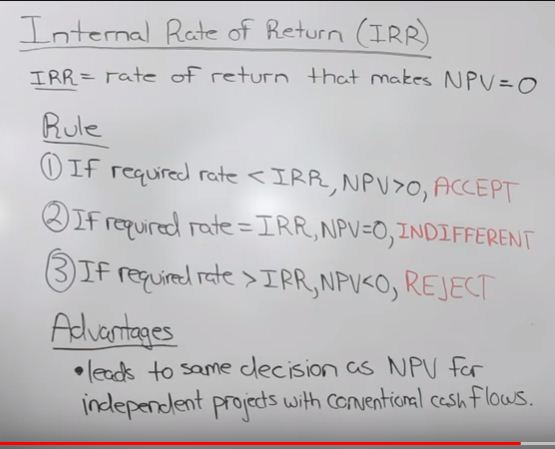 Internal Rate of Return (IRR)
IRR = rate of return that makes NPV=0
Rule
① If required rate < IRR, NPV>0, ACCEPT
② If required rate = IRR, NPV=0, INDIFFERENT
③ If required rate > IRR, NPV<0, REJECT
Advantages
• leads to same decision as NPV for
independent projects with conventional cash flows.